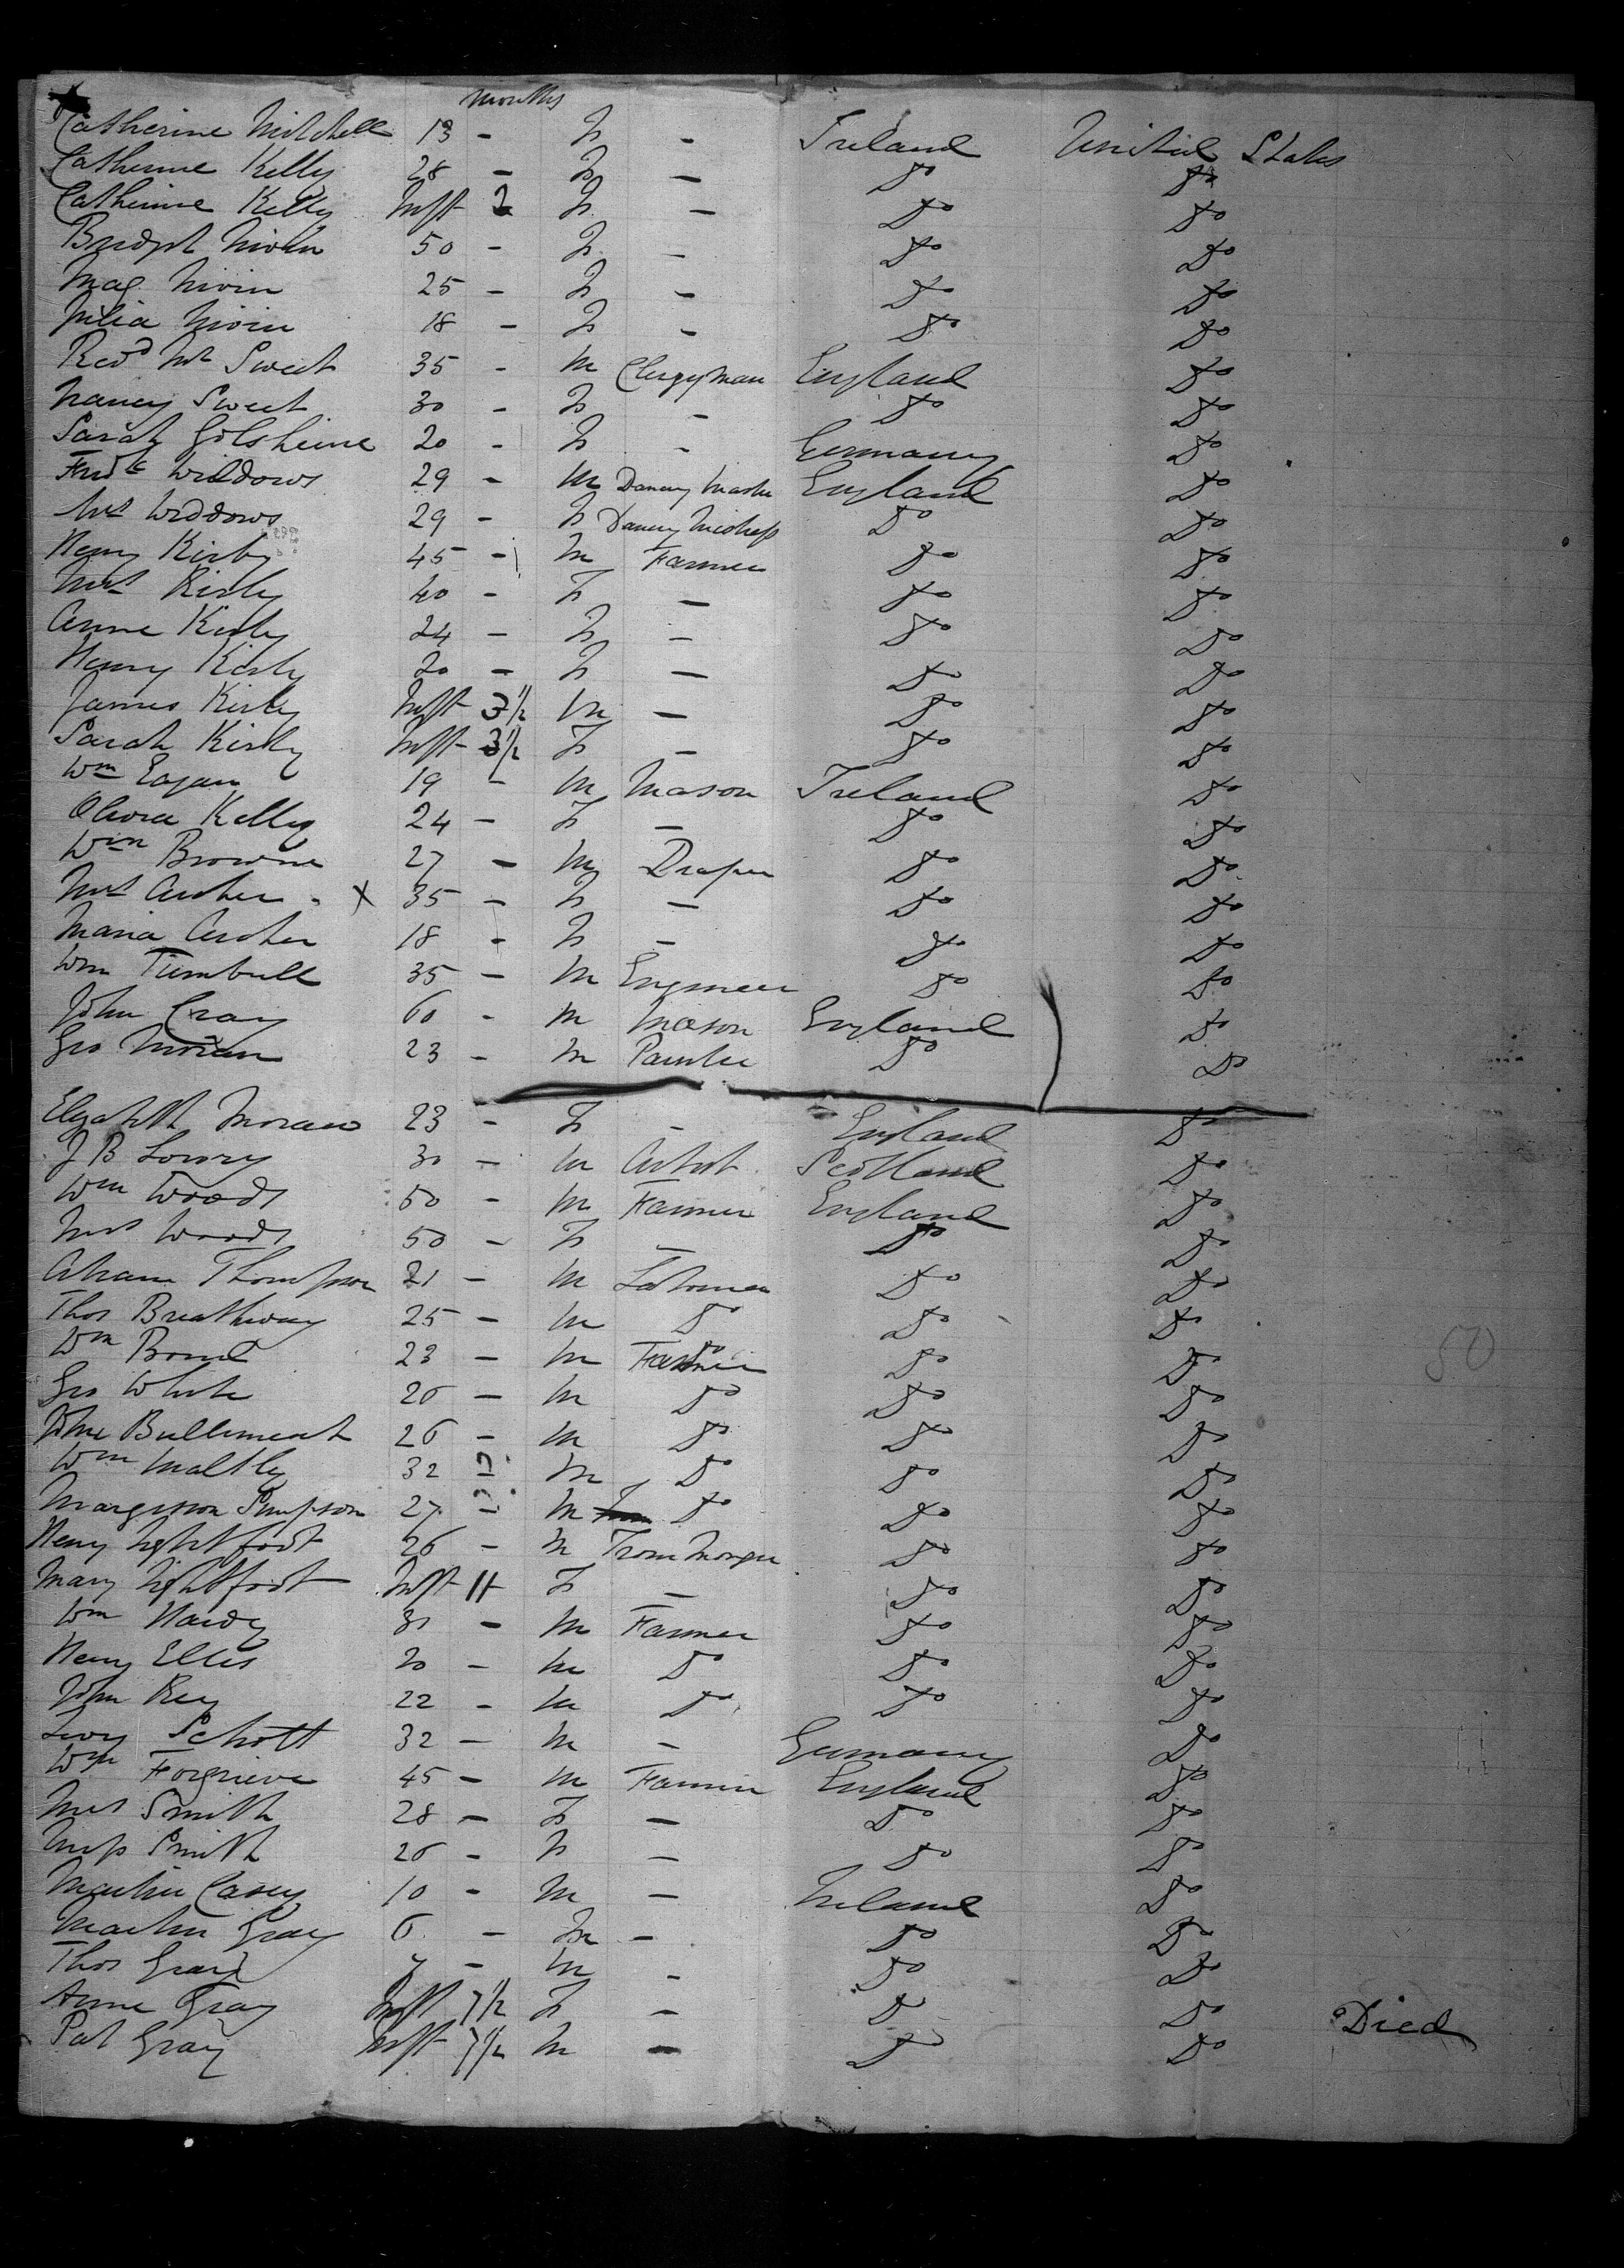 months
Catherine Mitchell 13 - F - Ireland United States
Catherine Kelly 28 - F - Do Do
Catherine Kelly Inft 2 F - Do Do
Bridgt Nivin 50 - F - Do Do
Mag Nivin 25 - F - Do Do
Julia Nivin 18 - F - Do Do
Revd Mr Sweet 35 - M Clergyman England Do
Nancy Sweet 30 - F - Do Do
Sarah 20 - F - Germany Do
Fredk Widdows 29 - M Dancing Master England Do
Mrs Widdows 29 - F Dancing Mistress Do Do
Henry Kirby 45 - M Farmer Do Do
Mrs Kirby 40 - F - Do Do
Anne Kirby 24 - F - Do Do
Henry Kirby 20 - F - Do Do
James Kirby Inft 3½ M - Do Do
Sarah Kirby Inft 3½ F - Do Do
Wm Eagan 19 - M Mason Ireland Do
Kelly 24 - F - Do Do
Wm Browne 27 - M Draper Do Do
Mrs Archer - X 35 - F - Do Do
Maria Archer 18 - F - Do Do
Wm Turnbull 35 - M Engineer Do Do
John Cray 60 - M Mason England Do
Geo Moran 23 - M Painter Do Do
Elizabeth Moran 23 - F - England Do
J B Lowry 30 - M Artist Scotland Do
Wm Woods 50 - M Farmer England Do
Mrs Woods 50 - F - Do Do
Abram Thompson 21 - M Labourer Do Do
Thos Breathway 25 - M Do Do Do
Wm Bond 23 - M Farmer Do Do
Geo White 26 - M Do Do Do
John Bulliment 26 - M Do Do Do
Wm Maltby 32 - M Do Do Do
Margisson Simpson 27 - M Do Do Do
Henry Lightfoot 26 - M Iron Monger Do Do
Mary Lightfoot Inft 11 F - Do Do
Wm Hardy 31 - M Farmer Do Do
Henry Ellis 20 - M Do Do Do
John Key 22 - M Do Do Do
Levy Schott 32 - M - Germany Do
Wm Forgrieve 45 - M Farmer England Do
Mrs Smith 28 - F - Do Do
Miss Smith 26 - F - Do Do
Martin Casey 10 - M - Ireland Do
Martin Gray 6 - M - Do Do
Thos Gray 7 - M - Do Do
Anne Gray Inft 7½ F - Do Do Died
Pat Gray Inft 7½ M - Do Do
50